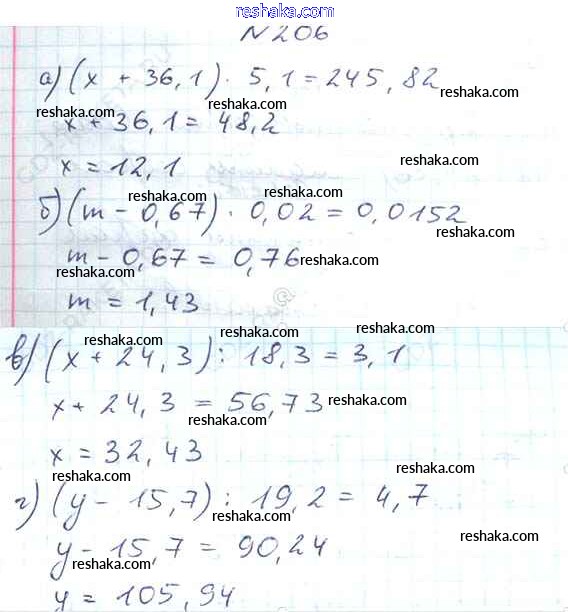 reshaka.com
N 206
а) (x + 36,1) · 5,1 = 245,82
reshaka.com
reshaka.com
x + 36,1 = 48,2
reshaka.com
reshaka.com
x = 12,1
reshaka.com
reshaka.com
б) (m - 0,67) · 0,02 = 0,0152
reshaka.com
m - 0,67 = 0,76
reshaka.com
reshaka.com
m = 1,43
reshaka.com
reshaka.com
reshaka.com
reshaka.com
в) (x + 24,3) : 18,3 = 3,1
reshaka.com
x + 24,3 = 56,73
reshaka.com
reshaka.com
x = 32,43
reshaka.com
reshaka.com
г) (y - 15,7) : 19,2 = 4,7
reshaka.com
y - 15,7 = 90,24
reshaka.com
reshaka.com
y = 105,94
reshaka.com